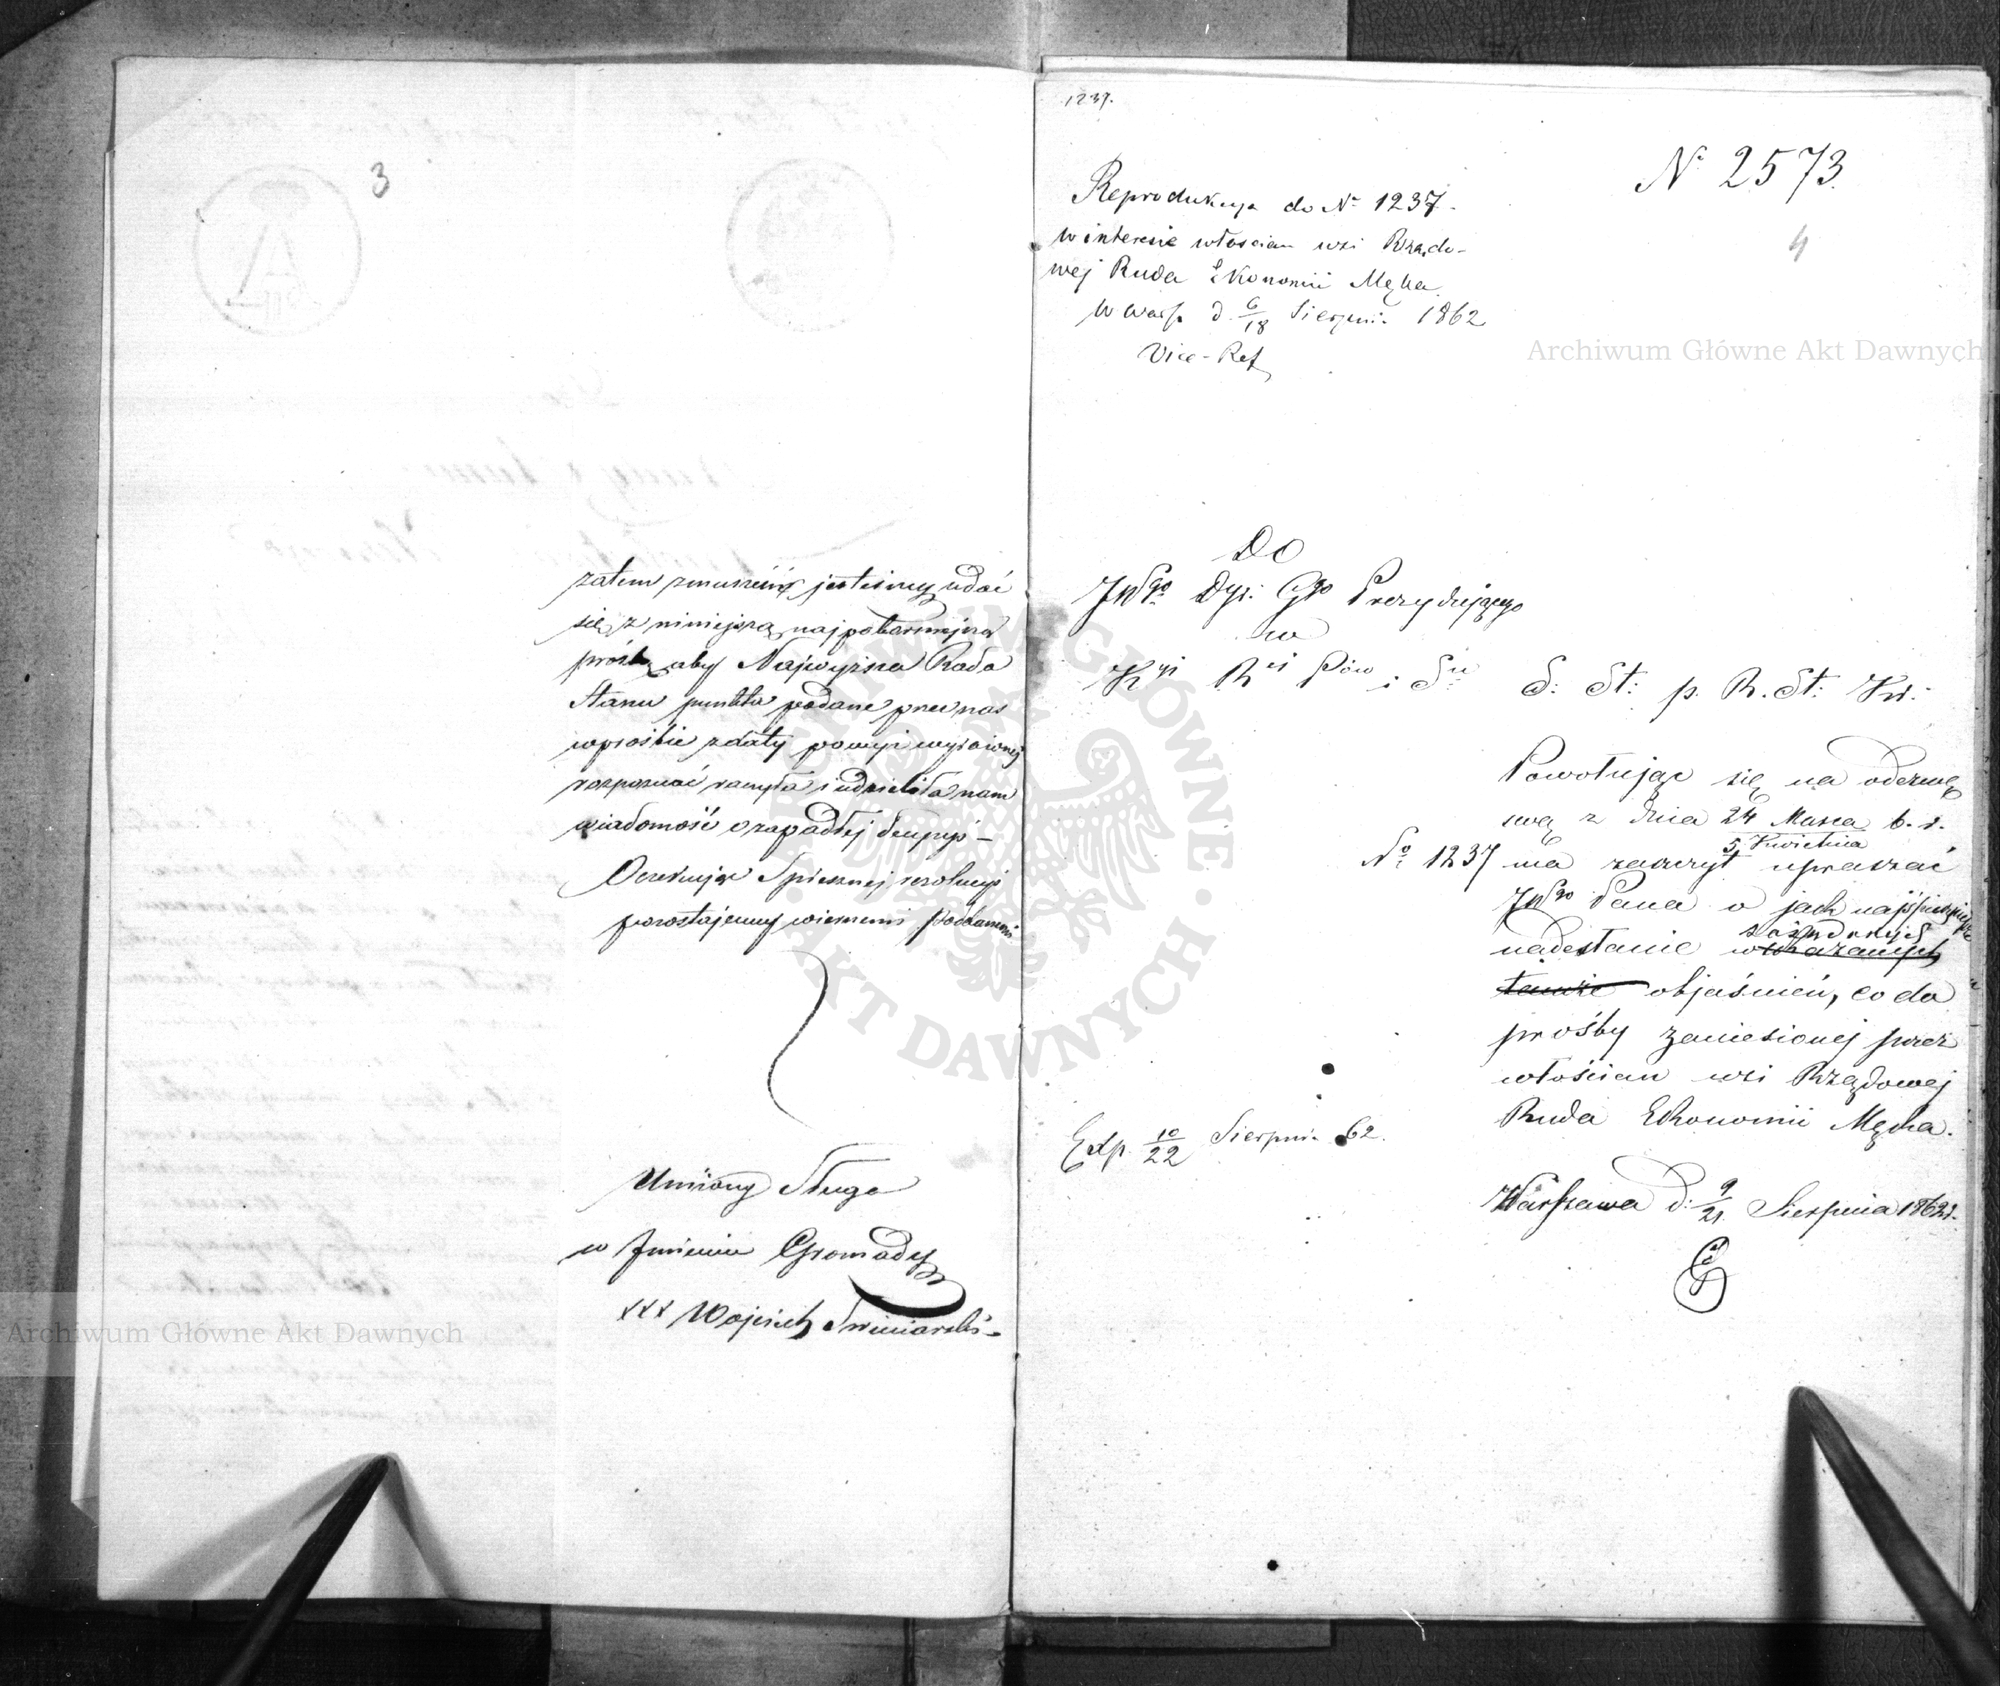 3
zatem zmuszeni jesteśmy udać
się z niniejszą najpokorniejszą
prośbą aby Najwyższa Rada
Stanu punkta podane przez nas
w prośbie z daty powyż wyrażonej
rozpoznać raczyła i udzieliła nam
wiadomość o zapadłej decyzyi –
Oczekując Spiesznej rezolucyi
pozostajemy wiernemi Poddanemi
Uniżony Sługa
w Imieniu Gromady
XXX Wojciech Swiniarski
1237.
Nº 2573.
4
Reprodukcya do Nº 1237.
w interesie włościan wsi Rządo-
wej Ruda Ekonomii Męka
w Warsz. d. 6/18 Sierpnia 1862
Vice-Ref
Do
JWgo Dyr: Ggo Prezydującego
w
Kyi Rej Pów i Su
S: St: p. R. St: Kr:
Powołując się na odezwę
swą z dnia 24 Marca b. r.
5 Kwietnia
Nº 1237 ma zaszczyt upraszać
JWgo Pana o jak najśpieszniejsze
żądanych
nadesłanie wskazanych
tamże objaśnień, co do
prośby zaniesionej przez
włościan wsi Rządowej
Ruda Ekonomii Męka.
Exp. 10/22 Sierpnia 62.
Warszawa d: 9/21 Sierpnia 1862 r.
Archiwum Główne Akt Dawnych
Archiwum Główne Akt Dawnych
ARCHIWUM GŁÓWNE AKT DAWNYCH